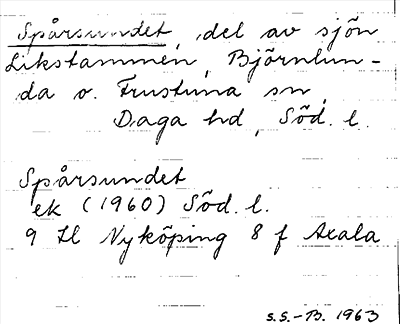 Spårsundet, del av sjön
Likstammen, Björnlun-
da o. Frustuna sn,
Daga hd, Söd. l.
Spårsundet
ek (1960) Söd. l.
9 H Nyköping 8 f Axala
S.S.-B. 1963